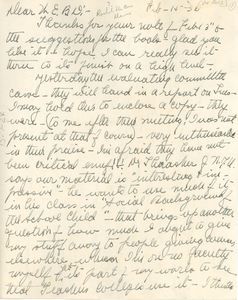 Dear W.E.B.D. - Feb-10-36
Thanks for your note, + for
the suggestions for the book - glad you
like it + hope I can really sell it
there to its finish on a high level -
Yesterday the evaluating committee
came - they will hand in a report on Tues -
may told Dis to enclose a copy - they
were - to me after their meeting, I was not
present at that, of course - very enthusiastic
in their praise - I'm afraid they have not
been critical enuf! Dr. Thrasher of N.Y.U.
says our material is "intriguing + im-
pressive" - he wants to use much of it
in his class in "Social Background of
the School Child" - that brings up another
question of how much I ought to give
my stuff away to people giving courses
elsewhere, when I'm on no faculty
myself + its part of my work to see
that Teachers Colleges use it - I think